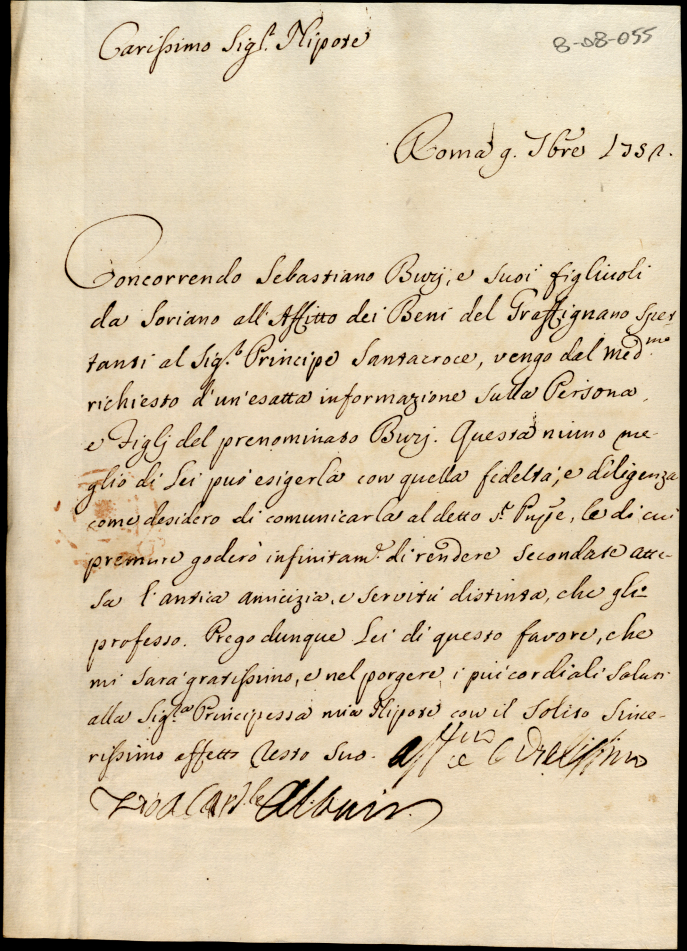 Carissimo Sig.r Nipote
8-08-055
Roma 9. 7bre 1751.
Concorrendo Sebastiano Buzj, e suoi figliuoli
da Soriano all'Affitto dei Beni del Graffignano spet-
tanti al Sig.r Principe Santacroce, vengo dal med.mo
richiesto d'un'esatta informazione sulla Persona,
e Figlj del prenominato Buzj. Questa niuno me-
glio di Lei può esigerla con quella fedeltà, e diligenza
come desidero di comunicarla al detto S.r Pnpe, le di cui
premure goderò infinitam.e di rendere secondate atte-
sa l'antica amicizia, e servitù distinta, che gli
professo. Prego dunque Lei di questo favore, che
mi sarà gratissimo, e nel porgere i più cordiali saluti
alla Sig.ra Principessa mia Nipote con il solito since-
rissimo affetto resto suo.
Zio A Card.le Albani